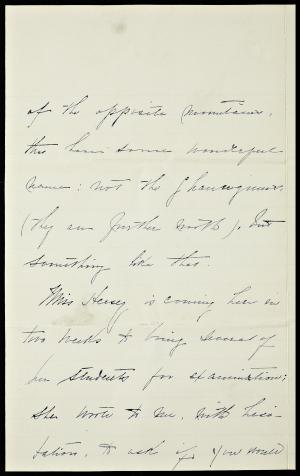 of the opposite mountains,
they have some wonderful
name: not the
(they are further north), but
something like that.
Miss Hersey is coming here in
two weeks to bring several of
her students for examination;
she wrote to me, with hesi-
tation, to ask if you would